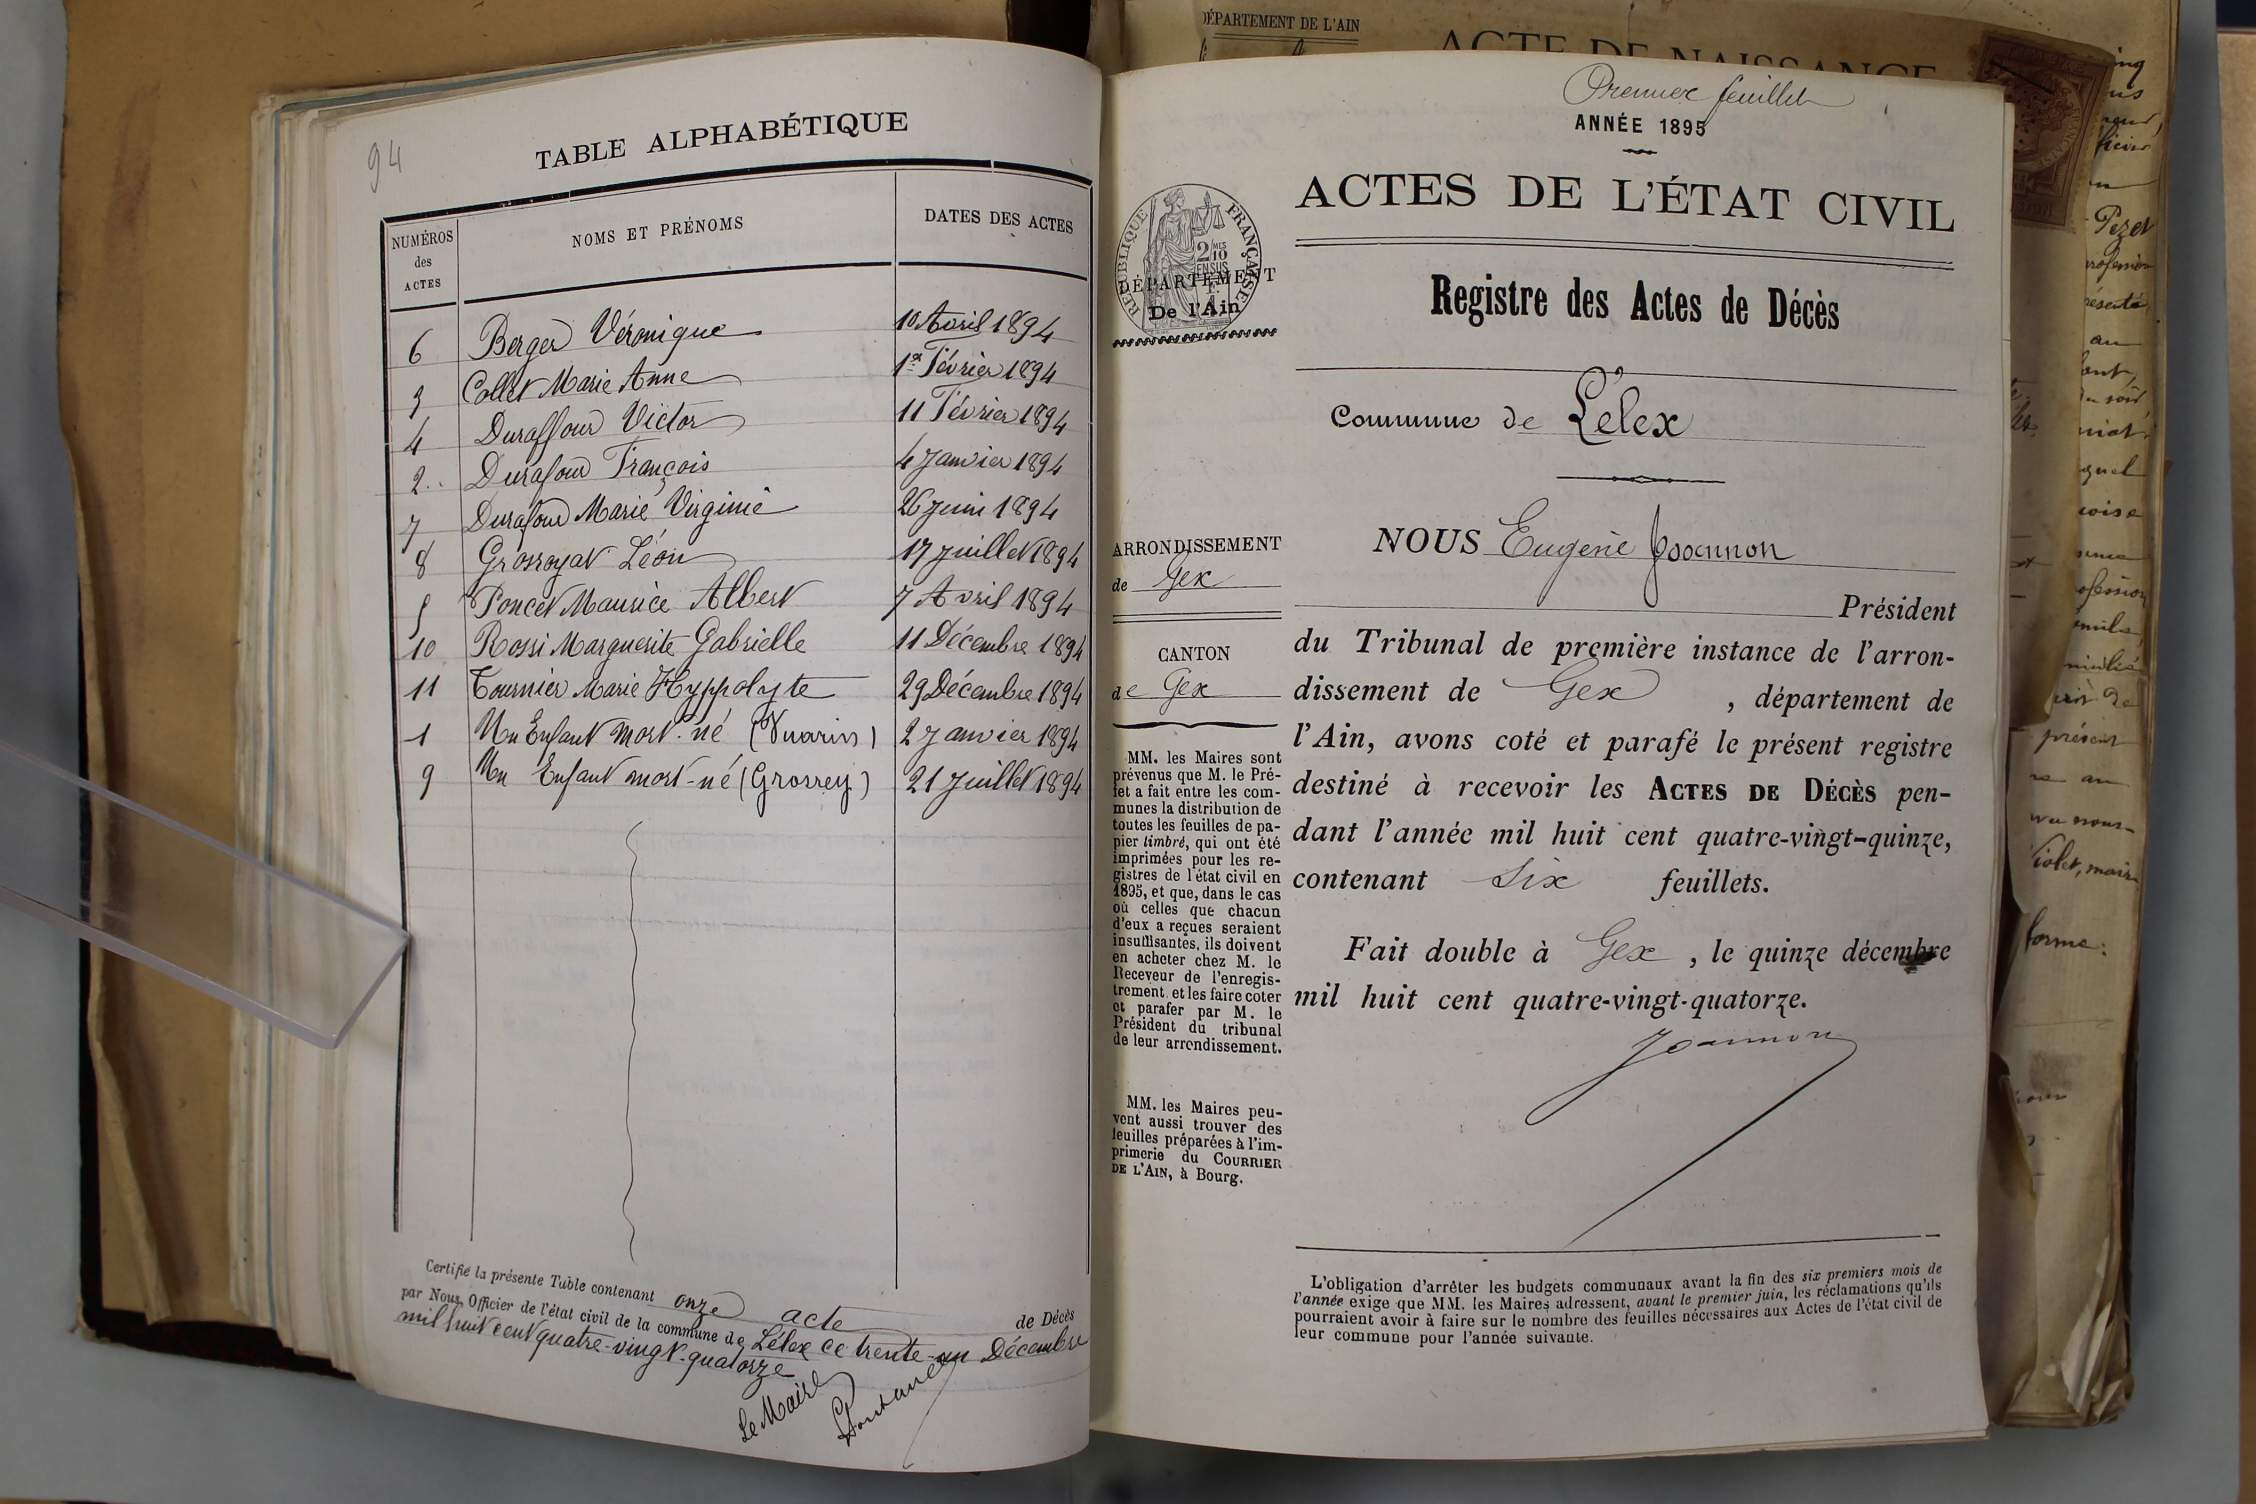 94
TABLE ALPHABÉTIQUE
NUMÉROS
des
ACTES
NOMS ET PRÉNOMS
DATES DES ACTES
6 Berger Véronique 10 Avril 1894
3 Collet Marie Anne 1er Février 1894
4 Duraffour Victor 11 Février 1894
2 Durafour François 4 Janvier 1894
7 Durafour Marie Virginie 26 Juin 1894
8 Grosroyat Léon 17 Juillet 1894
5 Poncet Maurice Albert 7 Avril 1894
10 Rossi Marguerite Gabrielle 11 Décembre 1894
11 Tournier Marie Hyppolyte 29 Décembre 1894
1 Un Enfant mort-né (Vuarin) 2 Janvier 1894
9 Un Enfant mort-né (Grosrey) 21 Juillet 1894
Certifié la présente Table contenant onze acte de Décès
par Nous, Officier de l'état civil de la commune de Lélex ce trente-un Décembre
mil huit cent quatre-vingt-quatorze
Le Maire
DÉPARTEMENT DE L'AIN
ACTE DE NAISSANCE
Premier feuillet
ANNÉE 1895
ACTES DE L'ÉTAT CIVIL
RÉPUBLIQUE FRANÇAISE
2 MES
10
EN SUS
DÉPARTEMENT
De l'Ain
Registre des Actes de Décès
Commune de Lélex
ARRONDISSEMENT
de Gex
CANTON
de Gex
MM. les Maires sont
prévenus que M. le Pré-
fet a fait entre les com-
munes la distribution de
toutes les feuilles de pa-
pier timbré, qui ont été
imprimées pour les re-
gistres de l'état civil en
1895, et que, dans le cas
où celles que chacun
d'eux a reçues seraient
insuffisantes, ils doivent
en acheter chez M. le
Receveur de l'enregis-
trement et les faire coter
et parafer par M. le
Président du tribunal
de leur arrondissement.
MM. les Maires peu-
vent aussi trouver des
feuilles préparées à l'im-
primerie du COURRIER
DE L'AIN, à Bourg.
NOUS Eugène Joannon
Président
du Tribunal de première instance de l'arron-
dissement de Gex, département de
l'Ain, avons coté et parafé le présent registre
destiné à recevoir les ACTES DE DÉCÈS pen-
dant l'année mil huit cent quatre-vingt-quinze,
contenant six feuillets.
Fait double à Gex, le quinze décembre
mil huit cent quatre-vingt-quatorze.
Joannon
L'obligation d'arrêter les budgets communaux avant la fin des six premiers mois de
l'année exige que MM. les Maires adressent, avant le premier juin, les réclamations qu'ils
pourraient avoir à faire sur le nombre des feuilles nécessaires aux Actes de l'état civil de
leur commune pour l'année suivante.
Pezet
au
présent
Violet, maire
forme: